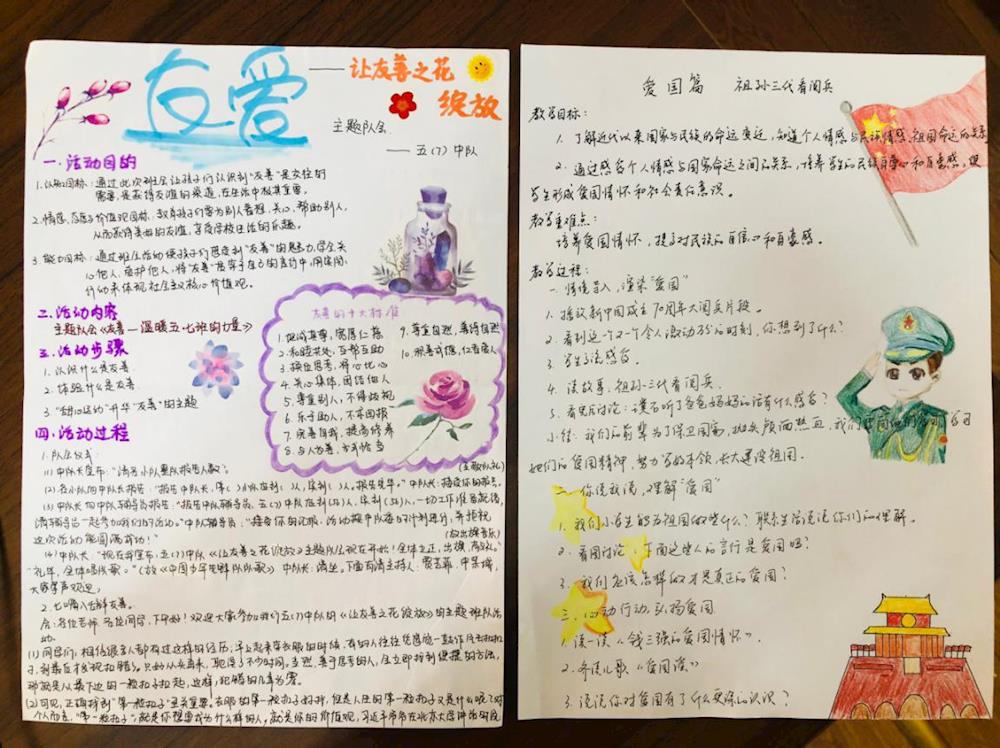 友爱
——让友善之花
绽放
主题队会
——五(7)中队
一.活动目的
1.认知目标:通过此次班会让孩子们认识到“友善”是交往的
需要,是获得友谊的渠道,在生活中极其重要。
2.情感、态度与价值观目标:教育孩子们要为别人着想,关心,帮助别人,
从而获得美好的友谊,享受学校生活的乐趣。
3.能力目标:通过班会活动使孩子们感受到“友善”的魅力,学会关
心他人,爱护他人,将“友善”贯穿于自己的言行中,用实际
行动来体现社会主义核心价值观。
二.活动内容
主题队会《友善—温暖五七班的力量》
三.活动步骤
1.认识什么是友善
2.体验什么是友善
3.升华“友善”的主题
四.活动过程
友善的十大标准
1.坦诚真尊,宽厚仁慈
2.和睦共处,互帮互助
3.换位思考,将心比心
4.关心集体,团结他人
5.尊重别人,不得歧视
6.乐于助人,不求回报
7.完善自我,提高修养
8.与人为善,方式恰当
9.尊重自然,善待自然
10.朋善我推,仁者爱人
1.队会仪式:
(1)中队长宣布:“请各小队整队报告人数”。
(主题队礼)
(2)各小队向中队长报告:“报告中队长,第()小队应到()人,实到()人。报告完毕。”中队长:接受你的报告。
(3)中队长向中队辅导员报告:“报告中队辅导员,五(7)中队应到()人,实到()人,一切工作准备就绪,
请辅导员一起参加我们的活动。”中队辅导员:“接受你的汇报,活动按中队委的计划进行,并预祝
这次活动能圆满成功!”
(放出旗音乐)
(4)中队长:“现在我宣布,五(7)中队《让友善之花绽放》主题队会现在开始!全体立正,出旗,敬礼。”
“礼毕,全体唱队歌。”(放《中国少年先锋队队歌》)中队长:请坐。下面有请主持人:
大家掌声欢迎。
2.七嘴八舌解友善。
合:各位老师,各位同学,下午好!欢迎大家参加我们五(7)中队的《让友善之花绽放》的主题班队活
动。
(1)同学们,相信很多人都有过这样的经历,早上起来穿衣服的时候,有的人往往凭感觉一颗颗
子,到最后才发现扣错。只好从头再来,耽误了不少时间。当然,善于思考的人,会立即找到便捷的方法,
那就是从最下边的一粒扣子扣起,这样,犯错的几率为零。
(2)可见,正确找到“第一粒扣子”至关重要。衣服的第一粒扣子好找,但是人生的第一粒扣子又是什么呢?对
个人而言,“第一粒扣子”就是你想要成为什么样的人,就是你的价值观,习近平爷爷在北京大学讲话的时候
爱国篇 祖孙三代看阅兵
教学目标:
1.了解近代以来国家与民族的命运变迁,知道个人情感与民族情感、祖国命运的关系
2.通过感受个人情感与国家命运之间的关系,培养学生的民族自尊心和自豪感,使
学生形成爱国情怀和社会责任意识。
教学重难点:
培养爱国情怀,提高对民族的自信心和自豪感。
教学过程:
一.情境导入,渲染“爱国”
1.播放新中国成立70周年大阅兵片段。
2.看到这一个又一个令人激动万分的时刻,你想到了什么?
3.学生交流感受。
4.读故事,祖孙三代看阅兵。
5.看完后讨论:瑞石听了爸爸妈妈的话有什么感受?
小结:我们的前辈为了保卫国家,抛头颅而热血,我们要向他们学习,学习
他们的爱国精神,努力学好本领,长大建设祖国。
二.你说我说,理解“爱国”
1.我们小学生能为祖国做些什么?联系生活说说你们的理解。
2.看图讨论:下面这些人的言行是爱国吗?
3.我们应该怎样做才是真正的爱国?
三.心动行动,弘扬爱国
1.读一读《钱三强的爱国情怀》.
2.齐读儿歌《爱国谣》
3.说说你对爱国有了什么更深的认识?